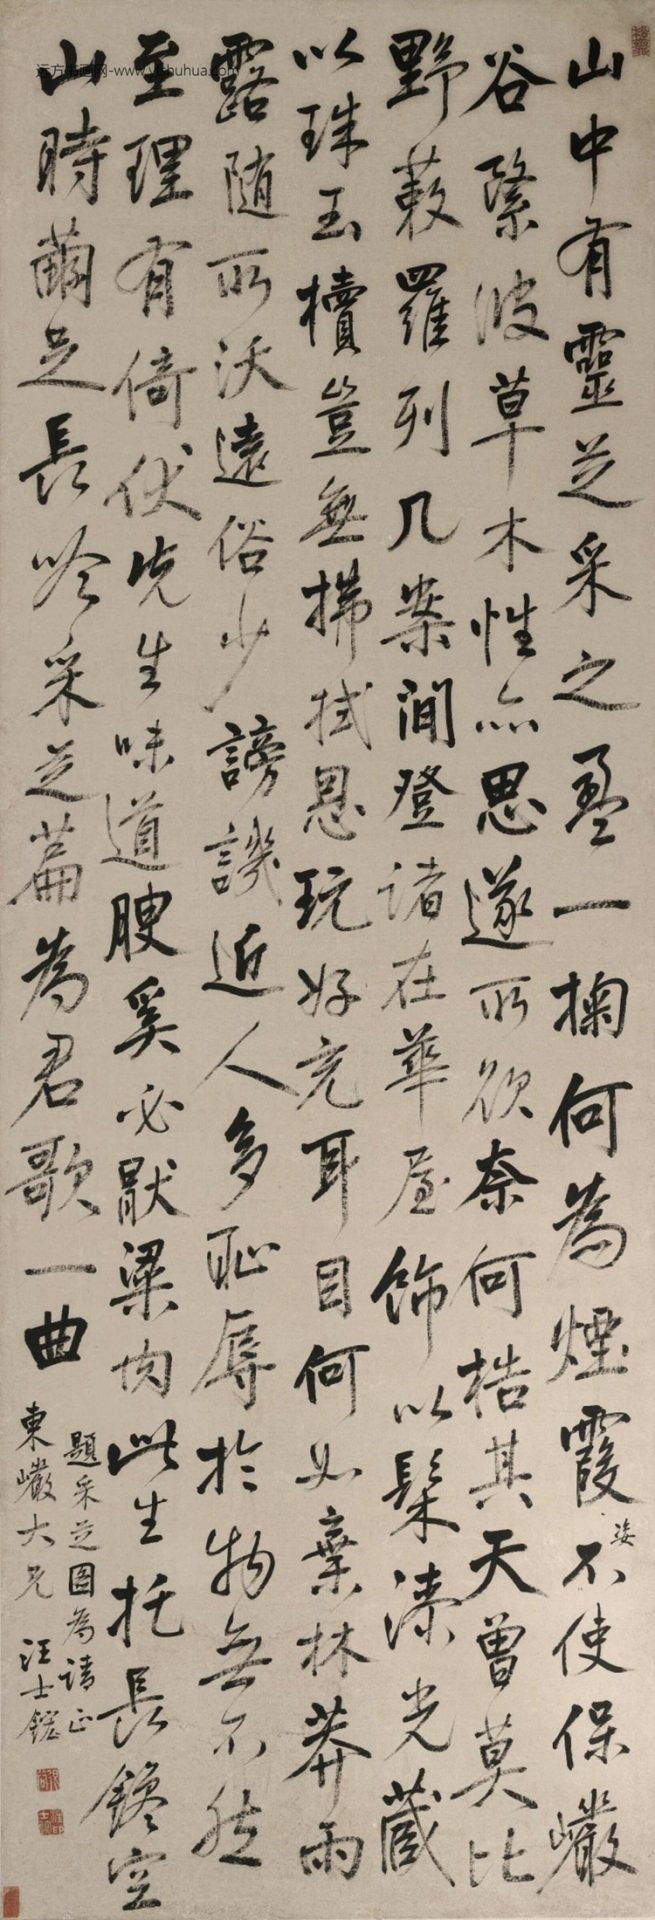 山中有靈芝采之盈一掬何為煙霞姿不使保巖
谷繄彼草木性亦思遂所欲奈何梏其天曾莫比
野蔌羅列几案間登諸在華屋飾以髹漆光藏
以珠玉櫝豈無拂拭恩玩好充耳目何如棄林莽雨
露随所沃遠俗少謗譏近人多恥辱於物無不然
至理有倚伏先生味道腴奚必厭粱肉此生托長鑱空
山時繭足長吟采芝篇為君歌一曲
題采芝圖為請正
東巖大兄 汪士鋐
远方书画网-www.yfshuhua.com